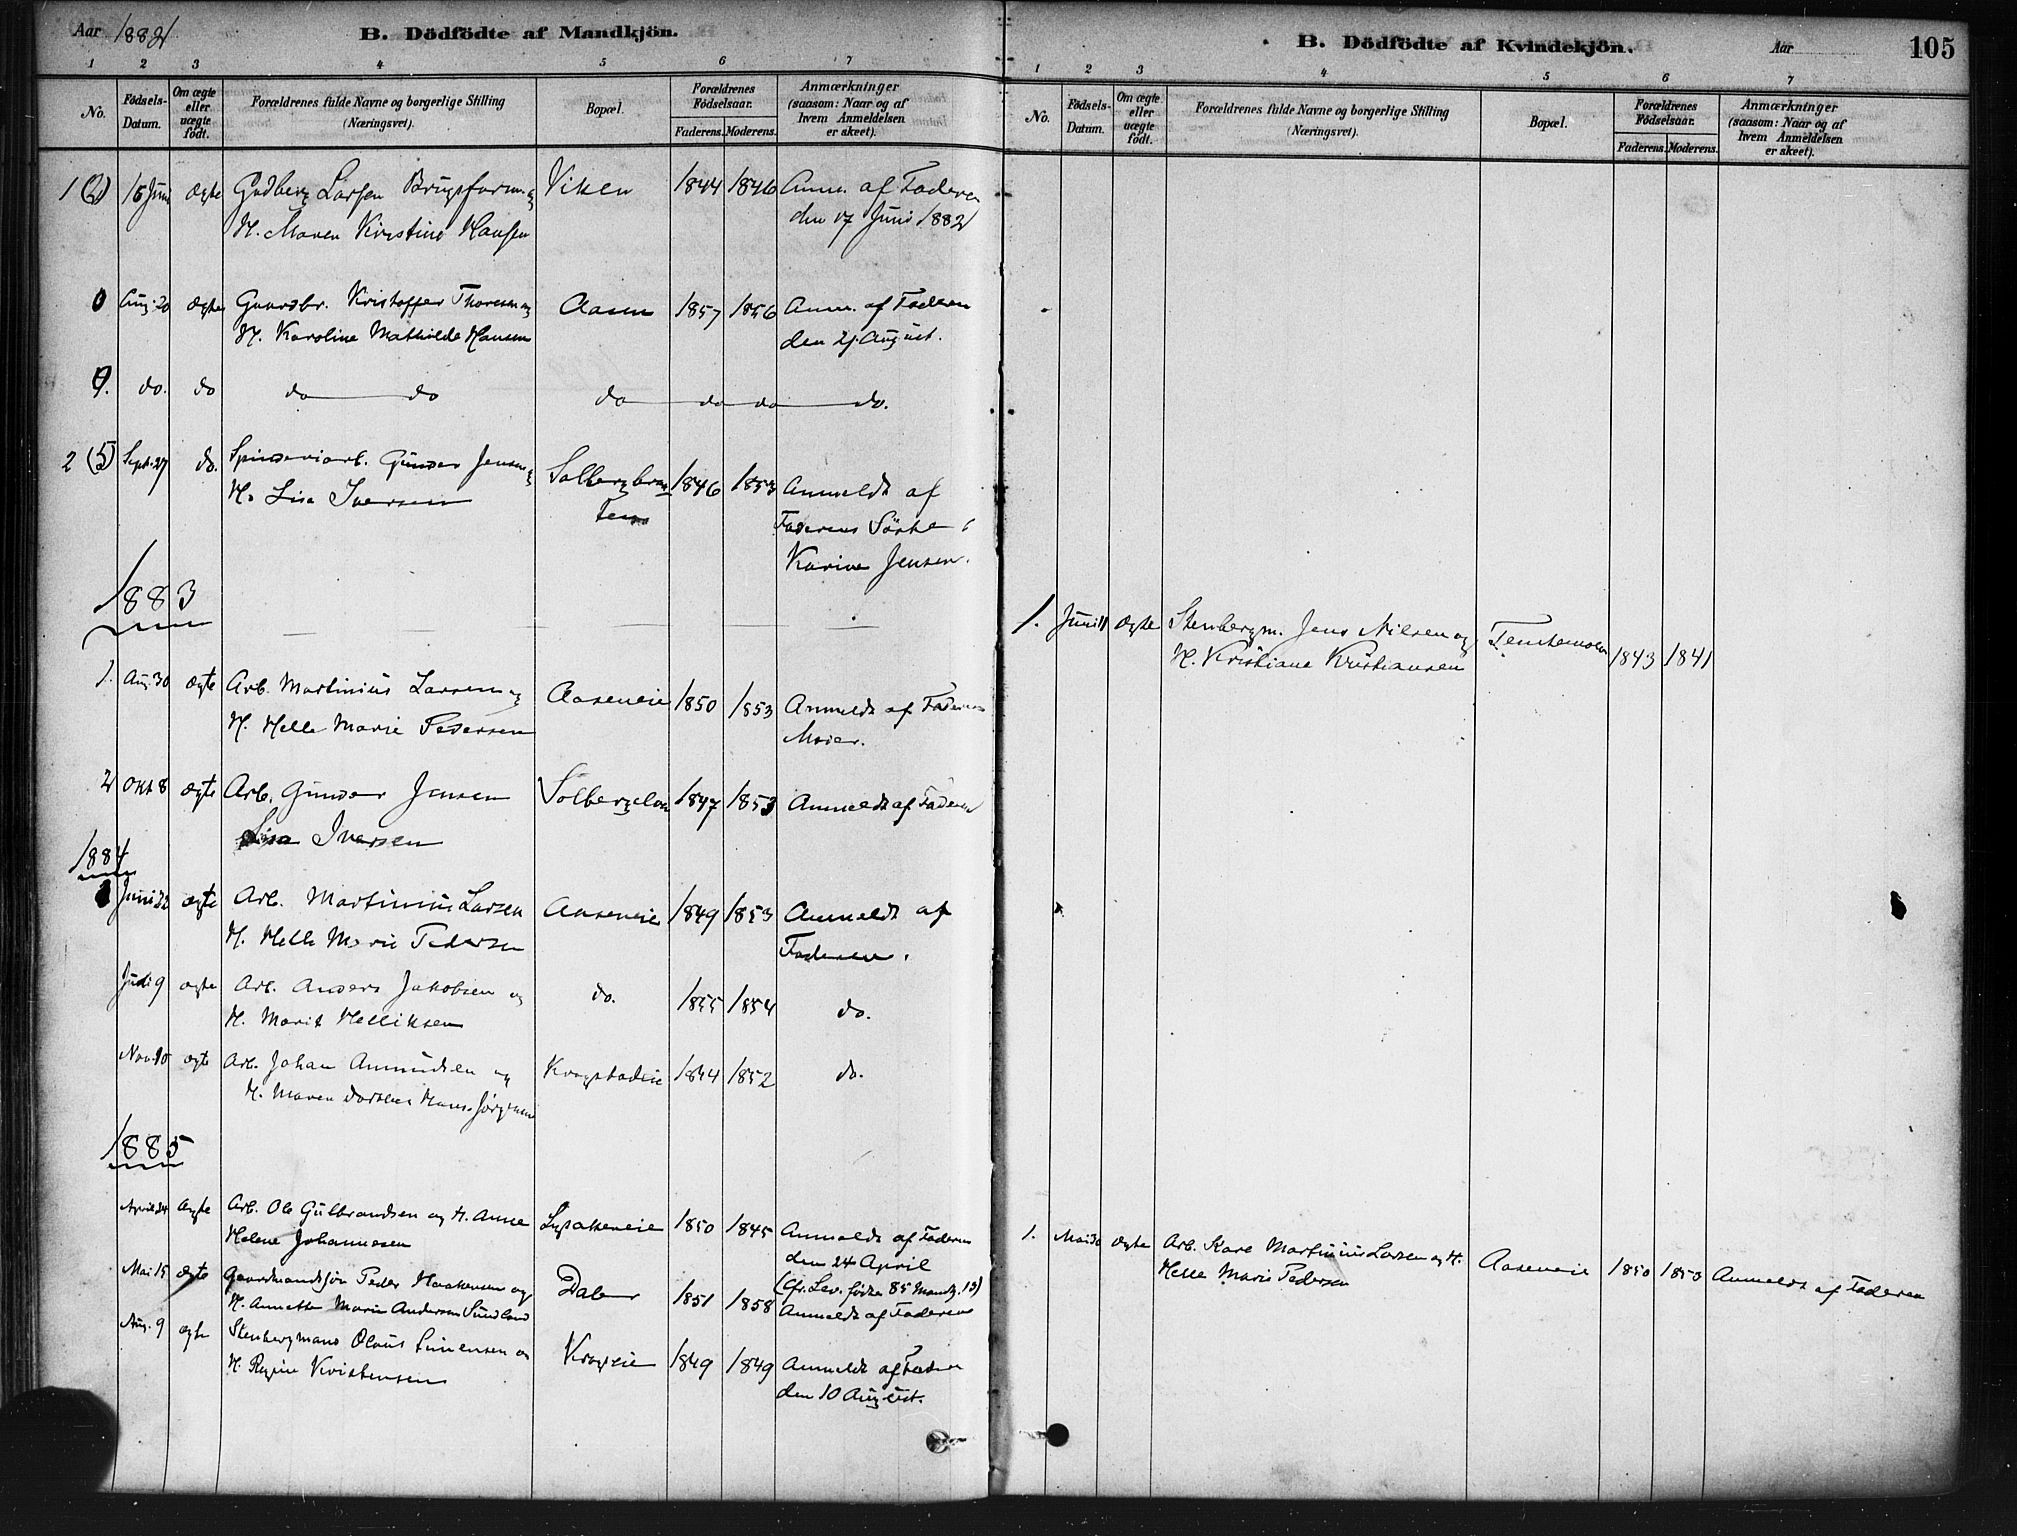 Aar 1882
B. Dödfödte af Mandkjön.
1 2 3 4 5 6 7
No.
Födsels-Datum.
Om ægte eller uægte født.
Forældrenes fulde Navne og borgerlige Stilling (Næringsvei).
Bopæl.
Forældrenes Födselsaar.
Faderens. Moderens.
Anmærkninger (saasom: Naar og af hvem Anmeldelsen er skeet).
1 (2) 16 Juni ægte Gudberg Larsen Brugsform. og Viken 1844 1846 Anm. af Faderen
H. Maren Kristine Hansen den 17 Juni 1882
0 Aug. 20 ægte Gaardbr. Kristoffer Thoresen og Aasen 1857 1856 Anm. af Faderen
H. Karoline Mathilde Hansen den 21 August.
0. do. do do do do do do do.
2 (5) Sept. 27 do. Spinneriarb. Gunder Jensen og Solbergbraa 1846 1853 Anmeldt af
H. Lisa Iversen ten Faderens
Karine Jensen.
1883
1. Aug. 30 ægte Arb. Martinius Larsen og Aaseneie 1850 1853 Anmeldt af Faderens
H. Helle Marie Pedersen Moder.
2 Okt 8 ægte Arb. Gunder Jensen 1847 1853 Anmeldt af Faderen
Lisa Iversen
1884
Juni 22 ægte Arb. Martinius Larsen Aaseneie 1849 1853 Anmeldt af
H. Helle Marie Pedersen Faderen.
Juli 9 ægte Arb. Anders Jakobsen og do. 1855 1854 do.
H. Marit Helliksen
Nov. 10 ægte Arb. Johan Amundsen og Krogstadeie 1844 1852 do.
H. Maren Dorthea Hans. Jørgensen
1885
April 24 ægte Arb. Ole Gulbrandsen og H. Anne 1850 1845 Anmeldt af Faderen
Helene Johannesen den 24 April
Mai 15 ægte Gaardmandssøn Peder Haakensen og Daler 1851 1858 (cfr. Lev. födte 85 Mandk. 13)
H. Annette Marie Andersen Sundland Anmeldt af Faderen
Aug. 9 ægte Stenbergmand Olaus Simensen og Krogeie 1849 1849 Anmeldt af Faderen
H. Regine Kristensen den 10 August.
B. Dödfödte af Kvindekjön.
Aar
105
1 2 3 4 5 6 7
No.
Födsels-Datum.
Om ægte eller uægte födt.
Forældrenes fulde Navne og borgerlige Stilling (Næringsvei).
Bopæl.
Forældrenes Födselsaar.
Faderens. Moderens.
Anmærkninger (saasom: Naar og af hvem Anmeldelsen er skeet).
1. Juni 11 ægte Stenbergm. Jens Nilsen og 1843 1841
H. Kristiane Kristiansen
1. Mai 30 ægte Arb. Kare Martinius Larsen og H. Aaseneie 1850 1853 Anmeldt af Faderen
Helle Marie Pedersen